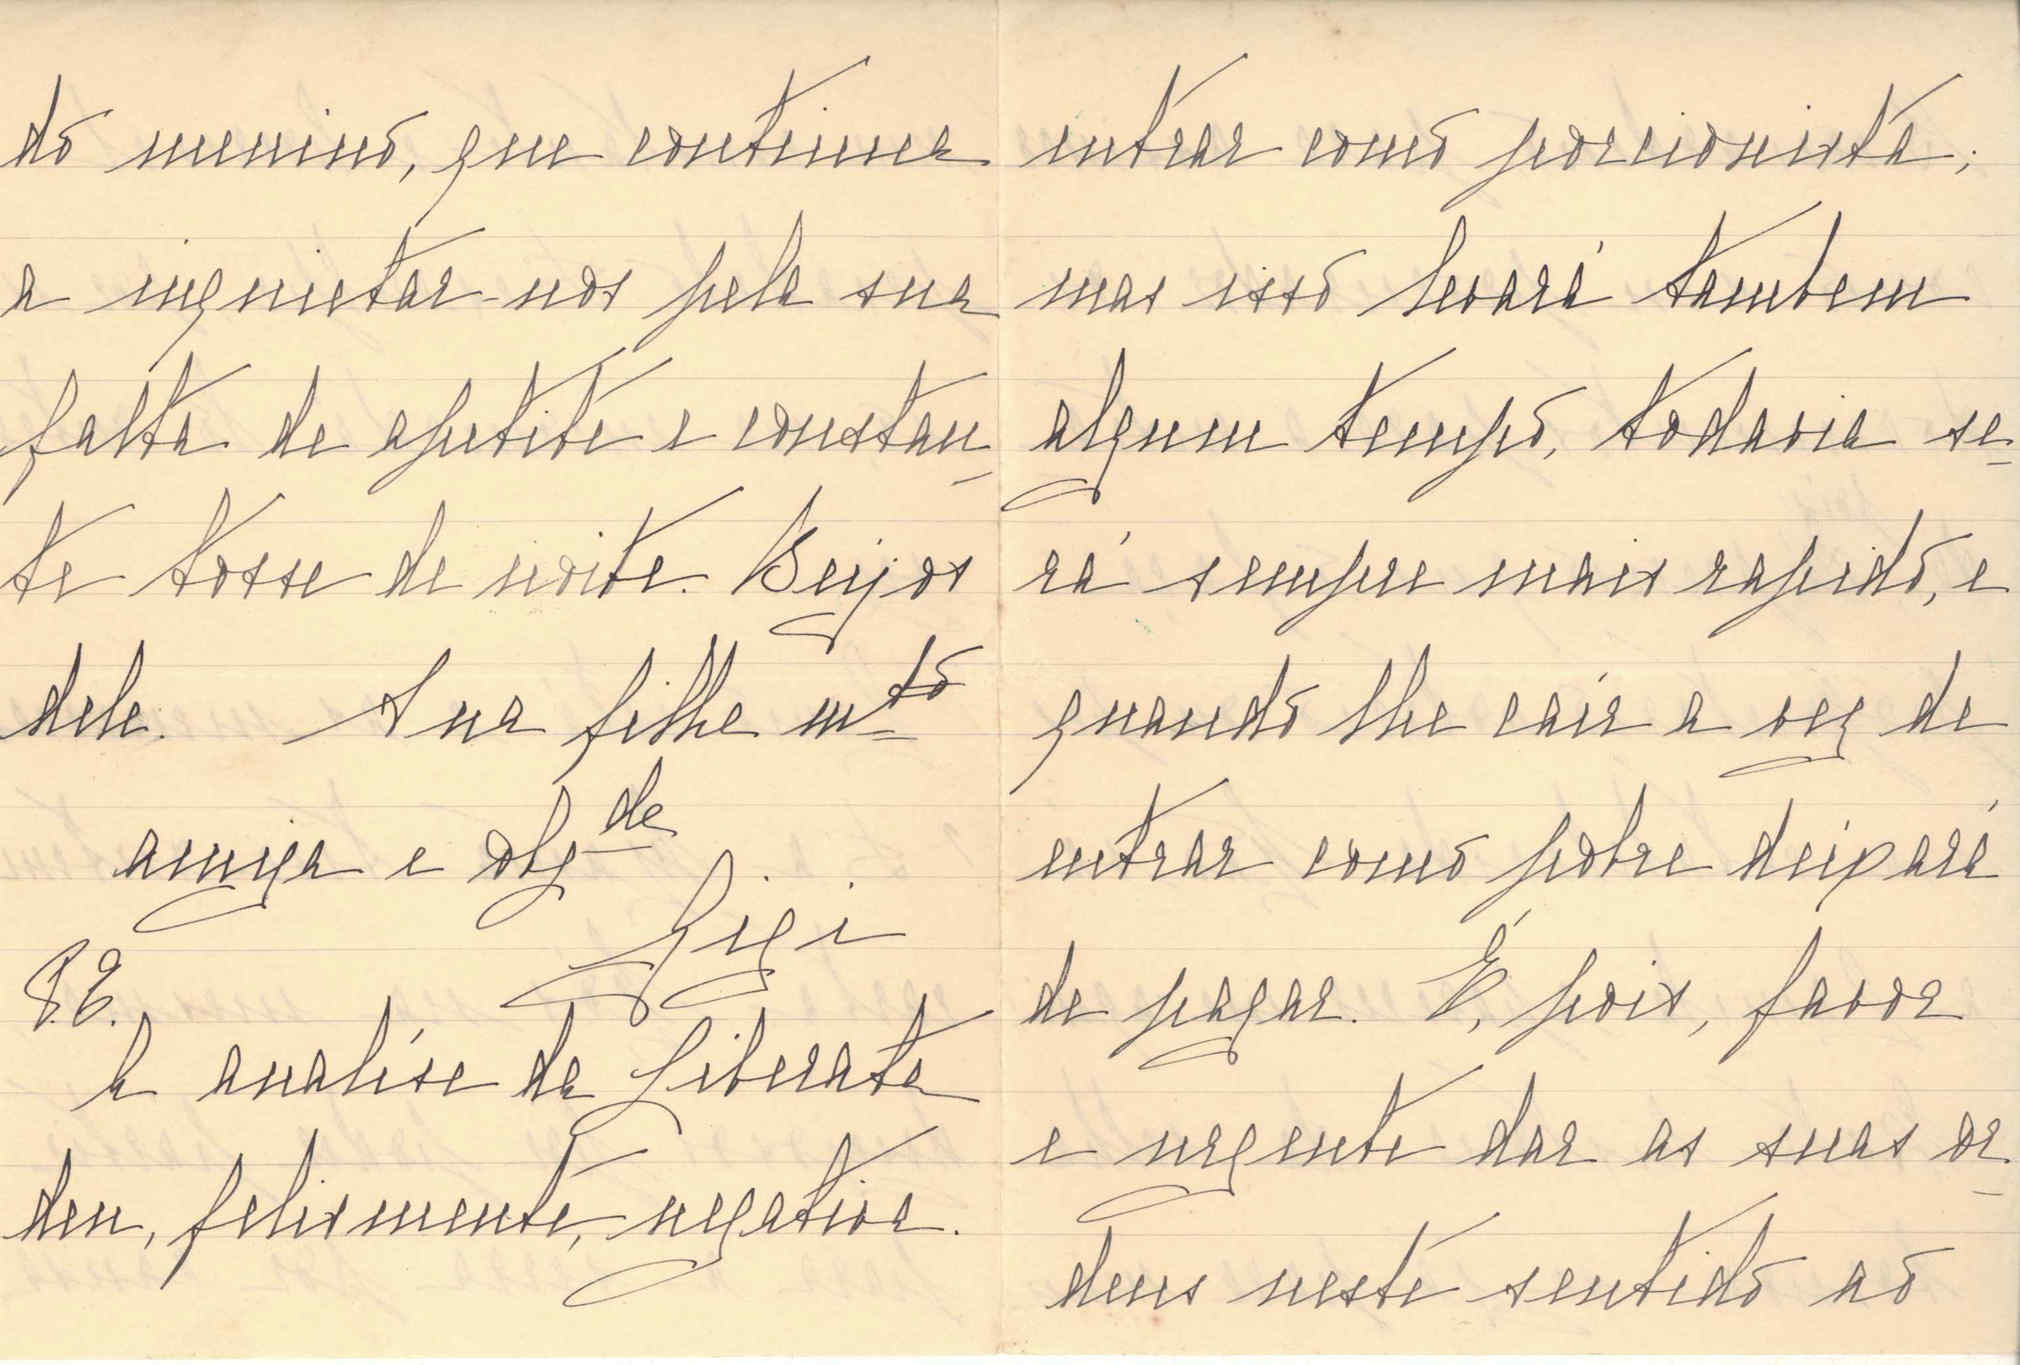 do menino, que continua
a inquietar-nos pela sua
falta de apetite e constan-
te tosse de noite. Beijos
dele. Sua filha mto
amiga e obgda
Gigi
P.E.
A analise da Liberata
deu, felismente, negativa.
entrar como porcionista;
mas isso levará tambem
algum tempo, todavia se-
rá sempre mais rapido, e
quando lhe caír a vez de
entrar como pobre deixará
de pagar. É, pois, favor
e urgente dar as suas or-
dens neste sentido ao